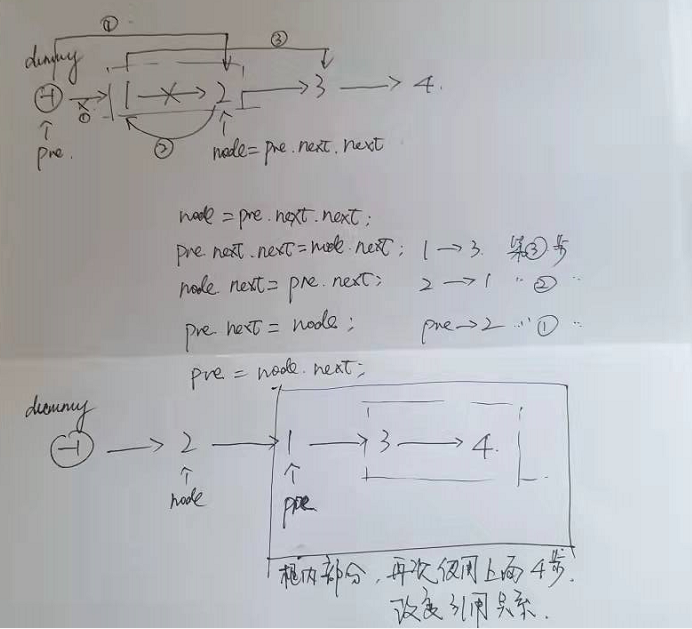 ① ③
dummy
-1 1 2 3 4
① ②
pre. node=pre.next.next
node=pre.next.next;
pre.next.next=node.next; 1→3. 第③步
node.next=pre.next; 2→1 " ② "
pre.next=node; pre→2 " ① "
pre=node.next;
dummy
-1 → 2 → 1 → 3 → 4.
node pre
框内部分,再次使用上面4步.
改变引用关系.